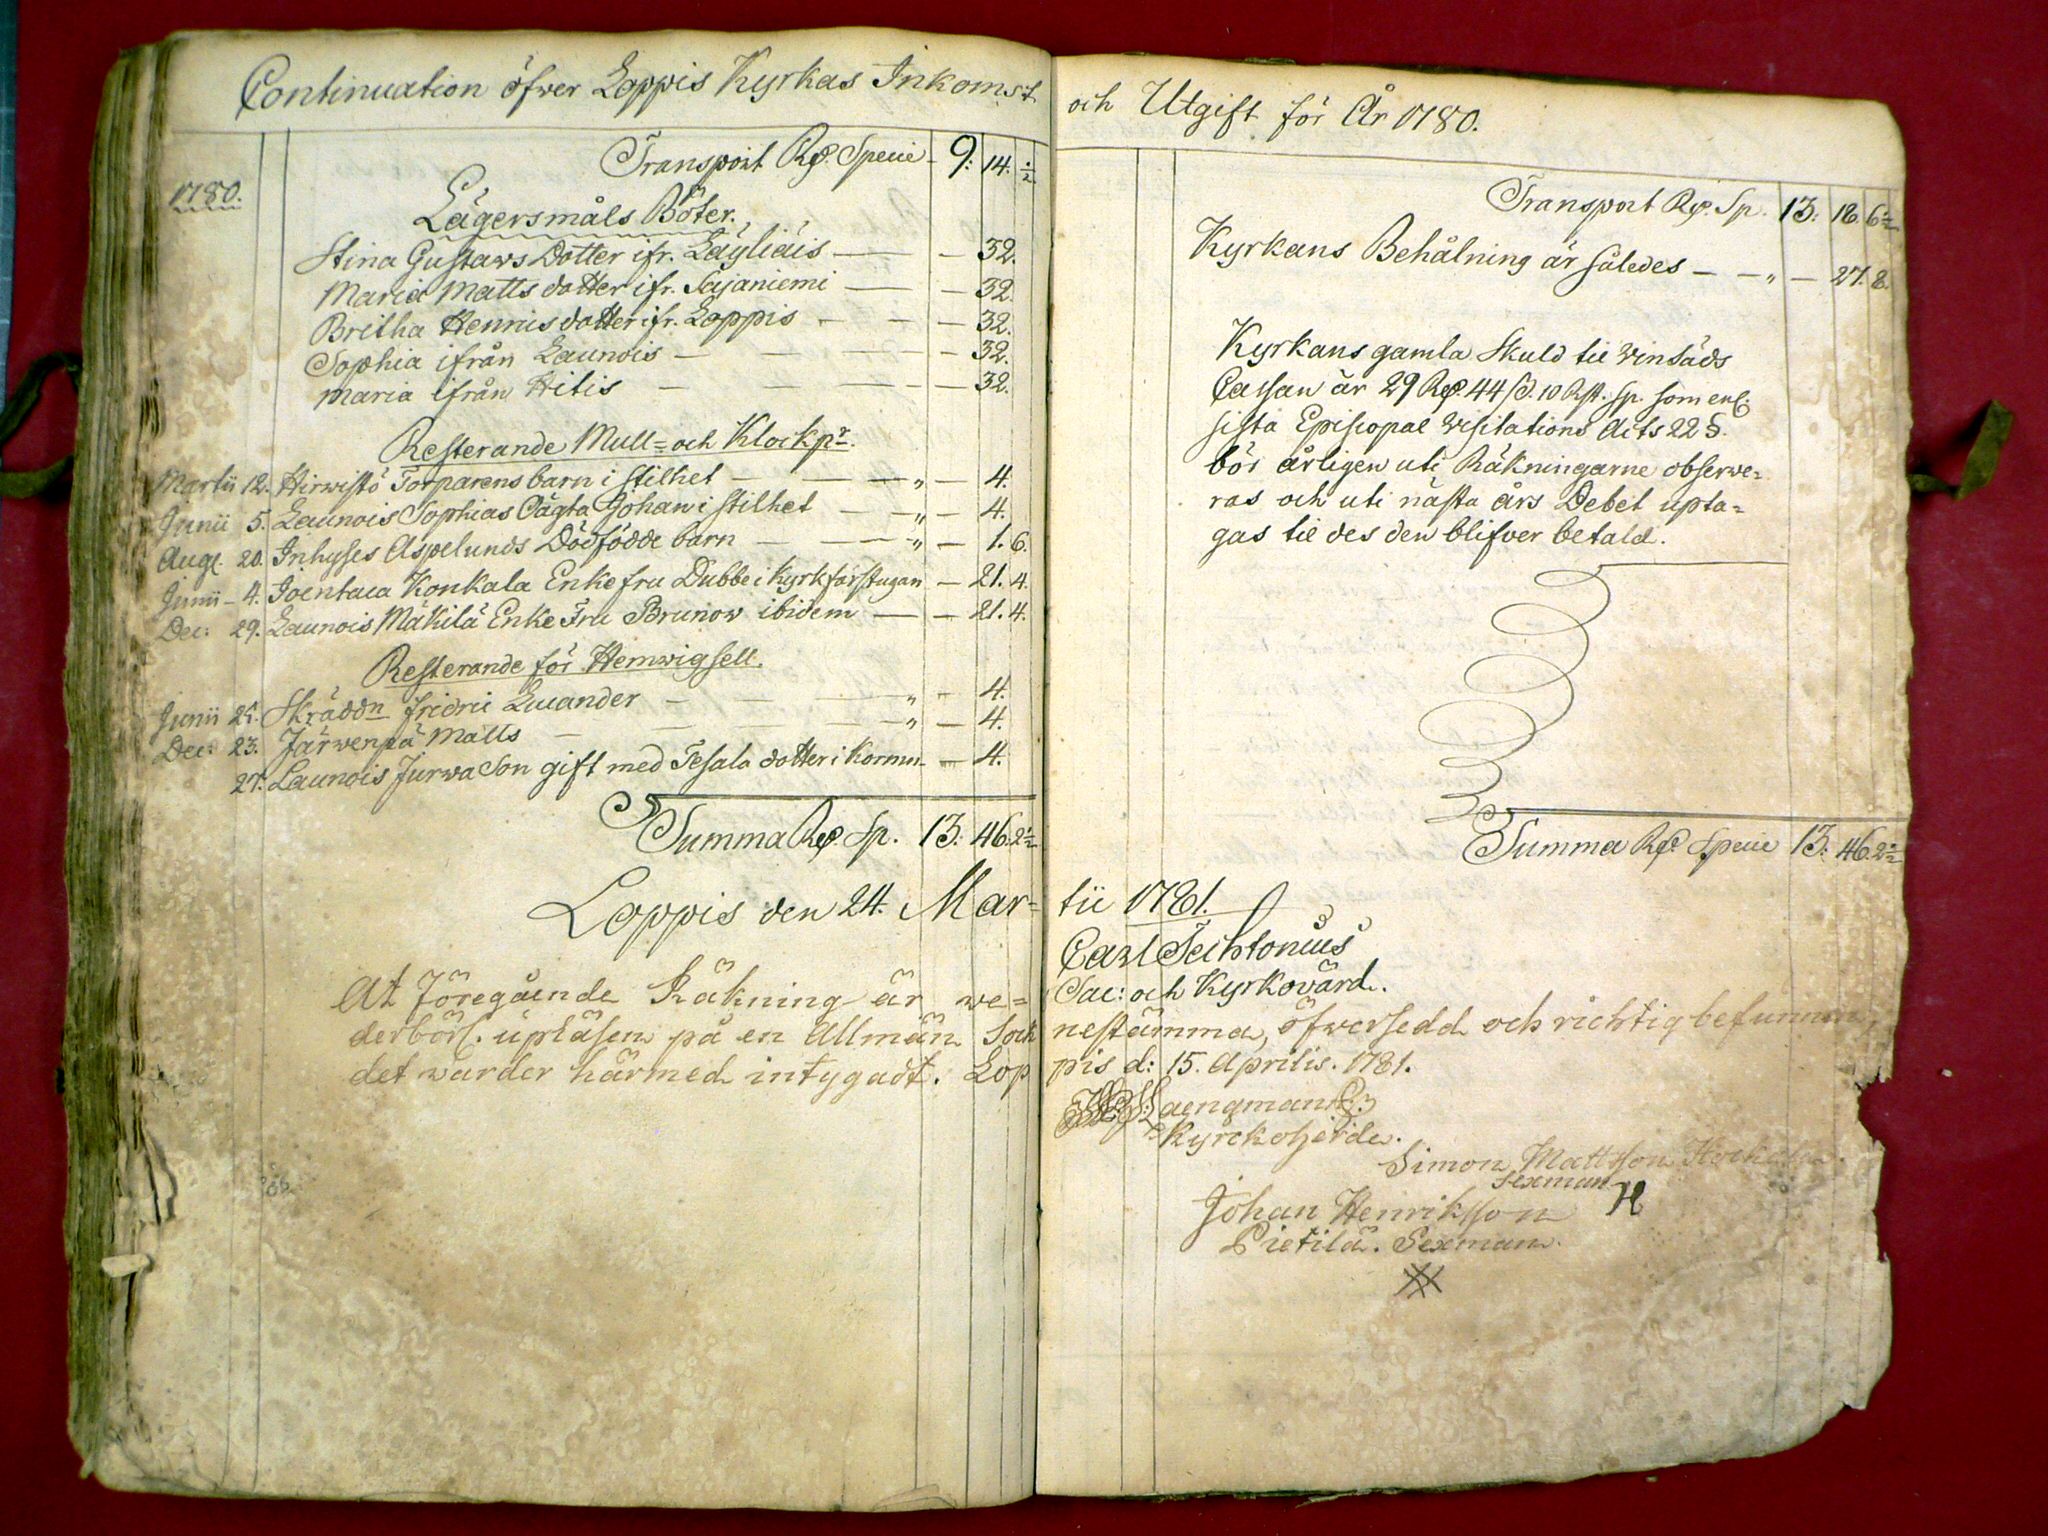 Continuation öfwer Loppis Kyrkas Inkomst
Transport Rd. Specie 9: 14. ½
1780.
Lägersmåls Böter.
Stina Gustaws Dotter ifr. Läyliäis — — 32.
Maria Matts dotter ifr. Sajaniemi — — 32.
Britha Henrics dotter ifr. Loppis — — 32.
Sophia ifrån Launois — — — 32.
Maria ifrån Hitis — — — 32.
Resterande Mull= och Klockpr.
Martii 12. Hirwistö Torparens barn i stilhet — — „ — 4.
Junii 5. Launois Sophias Oägta Johan i stilhet — — „ — 4.
Aug. 20. Inhyses Aspelunds Dödfödde barn — — „ — 1. 6.
Junii — 4. Joentaca Konkala Enkefru Dubbe i kyrkförstugan — 21. 4.
Dec: 29. Launois Mäkilä Enke Fru Brunow ibidem — — 21. 4.
Resterande för Hemwigsell.
Junii 21. Skräddn Fridric Lucander — — „ — 4.
Dec: 23. Järwenpä Matts — — — „ — 4.
27. Launois Jurwa Son gift med Tesala dotter i Kormu — 4.
Summa Rd. Sp. 13: 46. 2½
Loppis den 24. Mar=
At Föregåände Räkning är we=
derbörl. upläsen på en Allmän Sock
det warder härmed intygadt. Lop
och Utgift för År 1780.
Transport Rd. Sp. 13: 18. 6½
Kyrkans Behålning är således — — „ — 27. 8.
Kyrkans gamla Skuld til Winsäds
Cassan är 29 Rd. 44 s. 10 Rst. sp. som enl.
sista Episcopal Visitations Acts 22 §.
bör årligen uti Räkningarne observe=
ras och uti nästa års Debet upta=
gas til des den blifver betald.
Summa Rd. Specie 13: 46. 2½
tii 1781.
Carl Techtonius
Sac: och Kyrkovärd.
nestämma, öfwersedd och richtig befunnen,
pis d: 15. Aprilis. 1781.
Laengman
Kyrckoherde.
Simon Mattsson
Sexman
H
Johan Henriksson
Pietilä. Sexman.